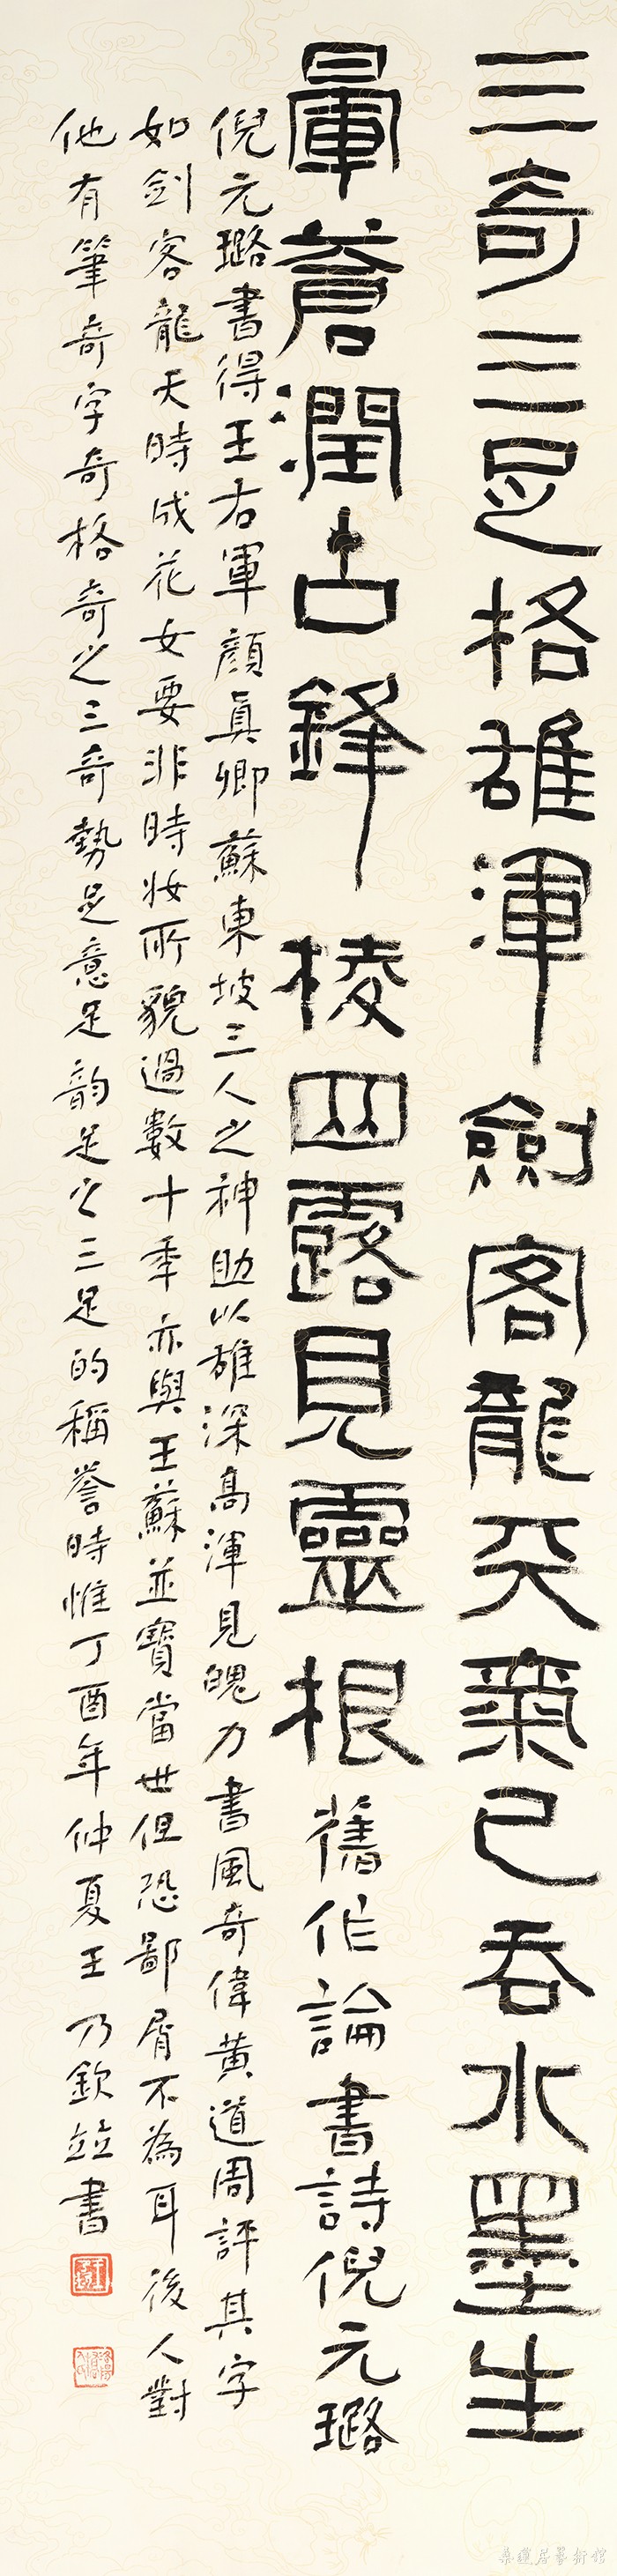 三奇三足格雄渾劍客龍天氣已吞水墨生
暈蒼潤古鋒棱四露見靈根舊作論書詩倪元璐
倪元璐書得王右軍顏真卿蘇東坡三人之神助以雄深高渾見魄力書風奇偉黃道周評其字
如劍客龍天時成花女要非時妝所貌過數十秊亦與王蘇並寶當世但恐鄙屑不為耳後人對
他有筆奇字奇格奇之三奇勢足意足韵足之三足的稱譽時惟丁酉年仲夏王乃欽竝書
桑蓮居藝術館